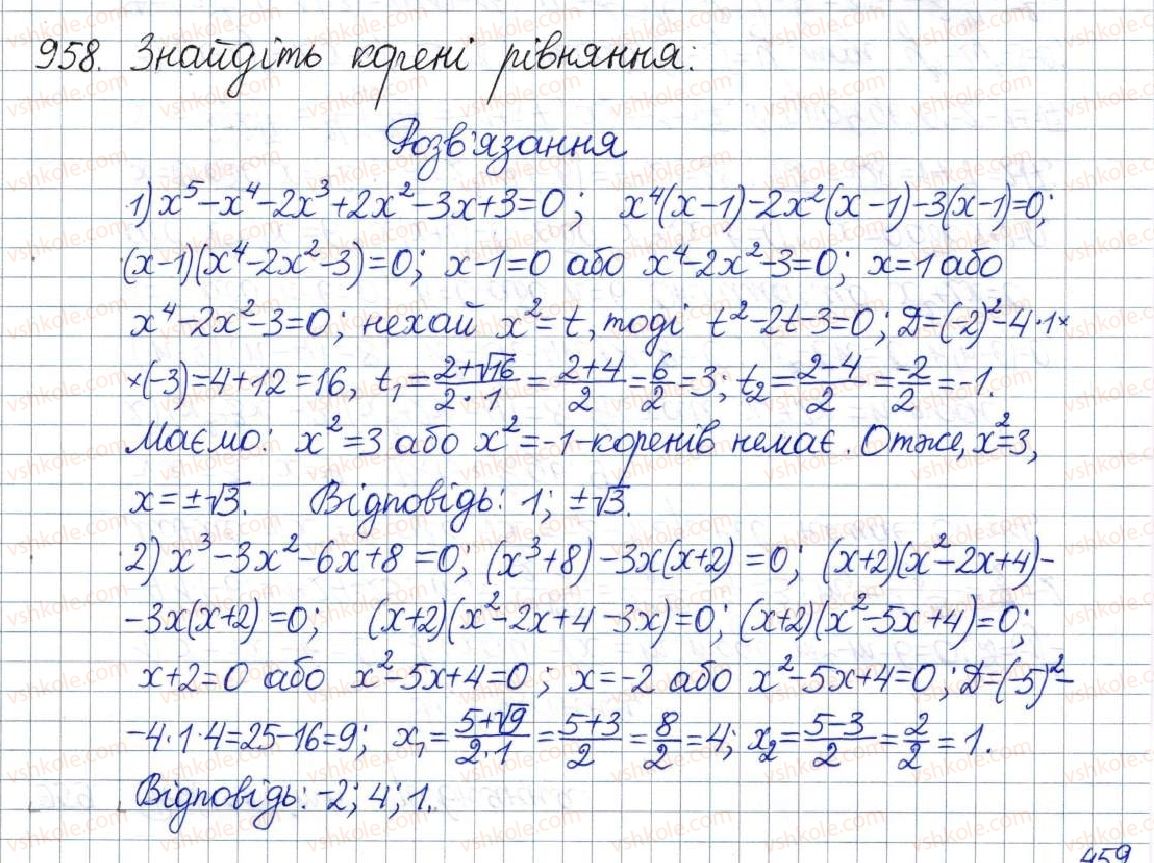 958. Знайдіть корені рівняння:
Розв'язання
1) x⁵-x⁴-2x³+2x²-3x+3=0; x⁴(x-1)-2x²(x-1)-3(x-1)=0;
(x-1)(x⁴-2x²-3)=0; x-1=0 або x⁴-2x²-3=0; x=1 або
x⁴-2x²-3=0; нехай x²=t, тоді t²-2t-3=0; D=(-2)²-4·1×
×(-3)=4+12=16, t₁=(2+√16)/(2·1)=(2+4)/2=6/2=3; t₂=(2-4)/2=-2/2=-1.
Маємо: x²=3 або x²=-1-коренів немає. Отже, x²=3,
x=±√3. Відповідь: 1; ±√3.
2) x³-3x²-6x+8=0; (x³+8)-3x(x+2)=0; (x+2)(x²-2x+4)-
-3x(x+2)=0; (x+2)(x²-2x+4-3x)=0; (x+2)(x²-5x+4)=0;
x+2=0 або x²-5x+4=0; x=-2 або x²-5x+4=0; D=(-5)²-
-4·1·4=25-16=9; x₁=(5+√9)/(2·1)=(5+3)/2=8/2=4; x₂=(5-3)/2=2/2=1.
Відповідь: -2; 4; 1.
459
vshkole.com